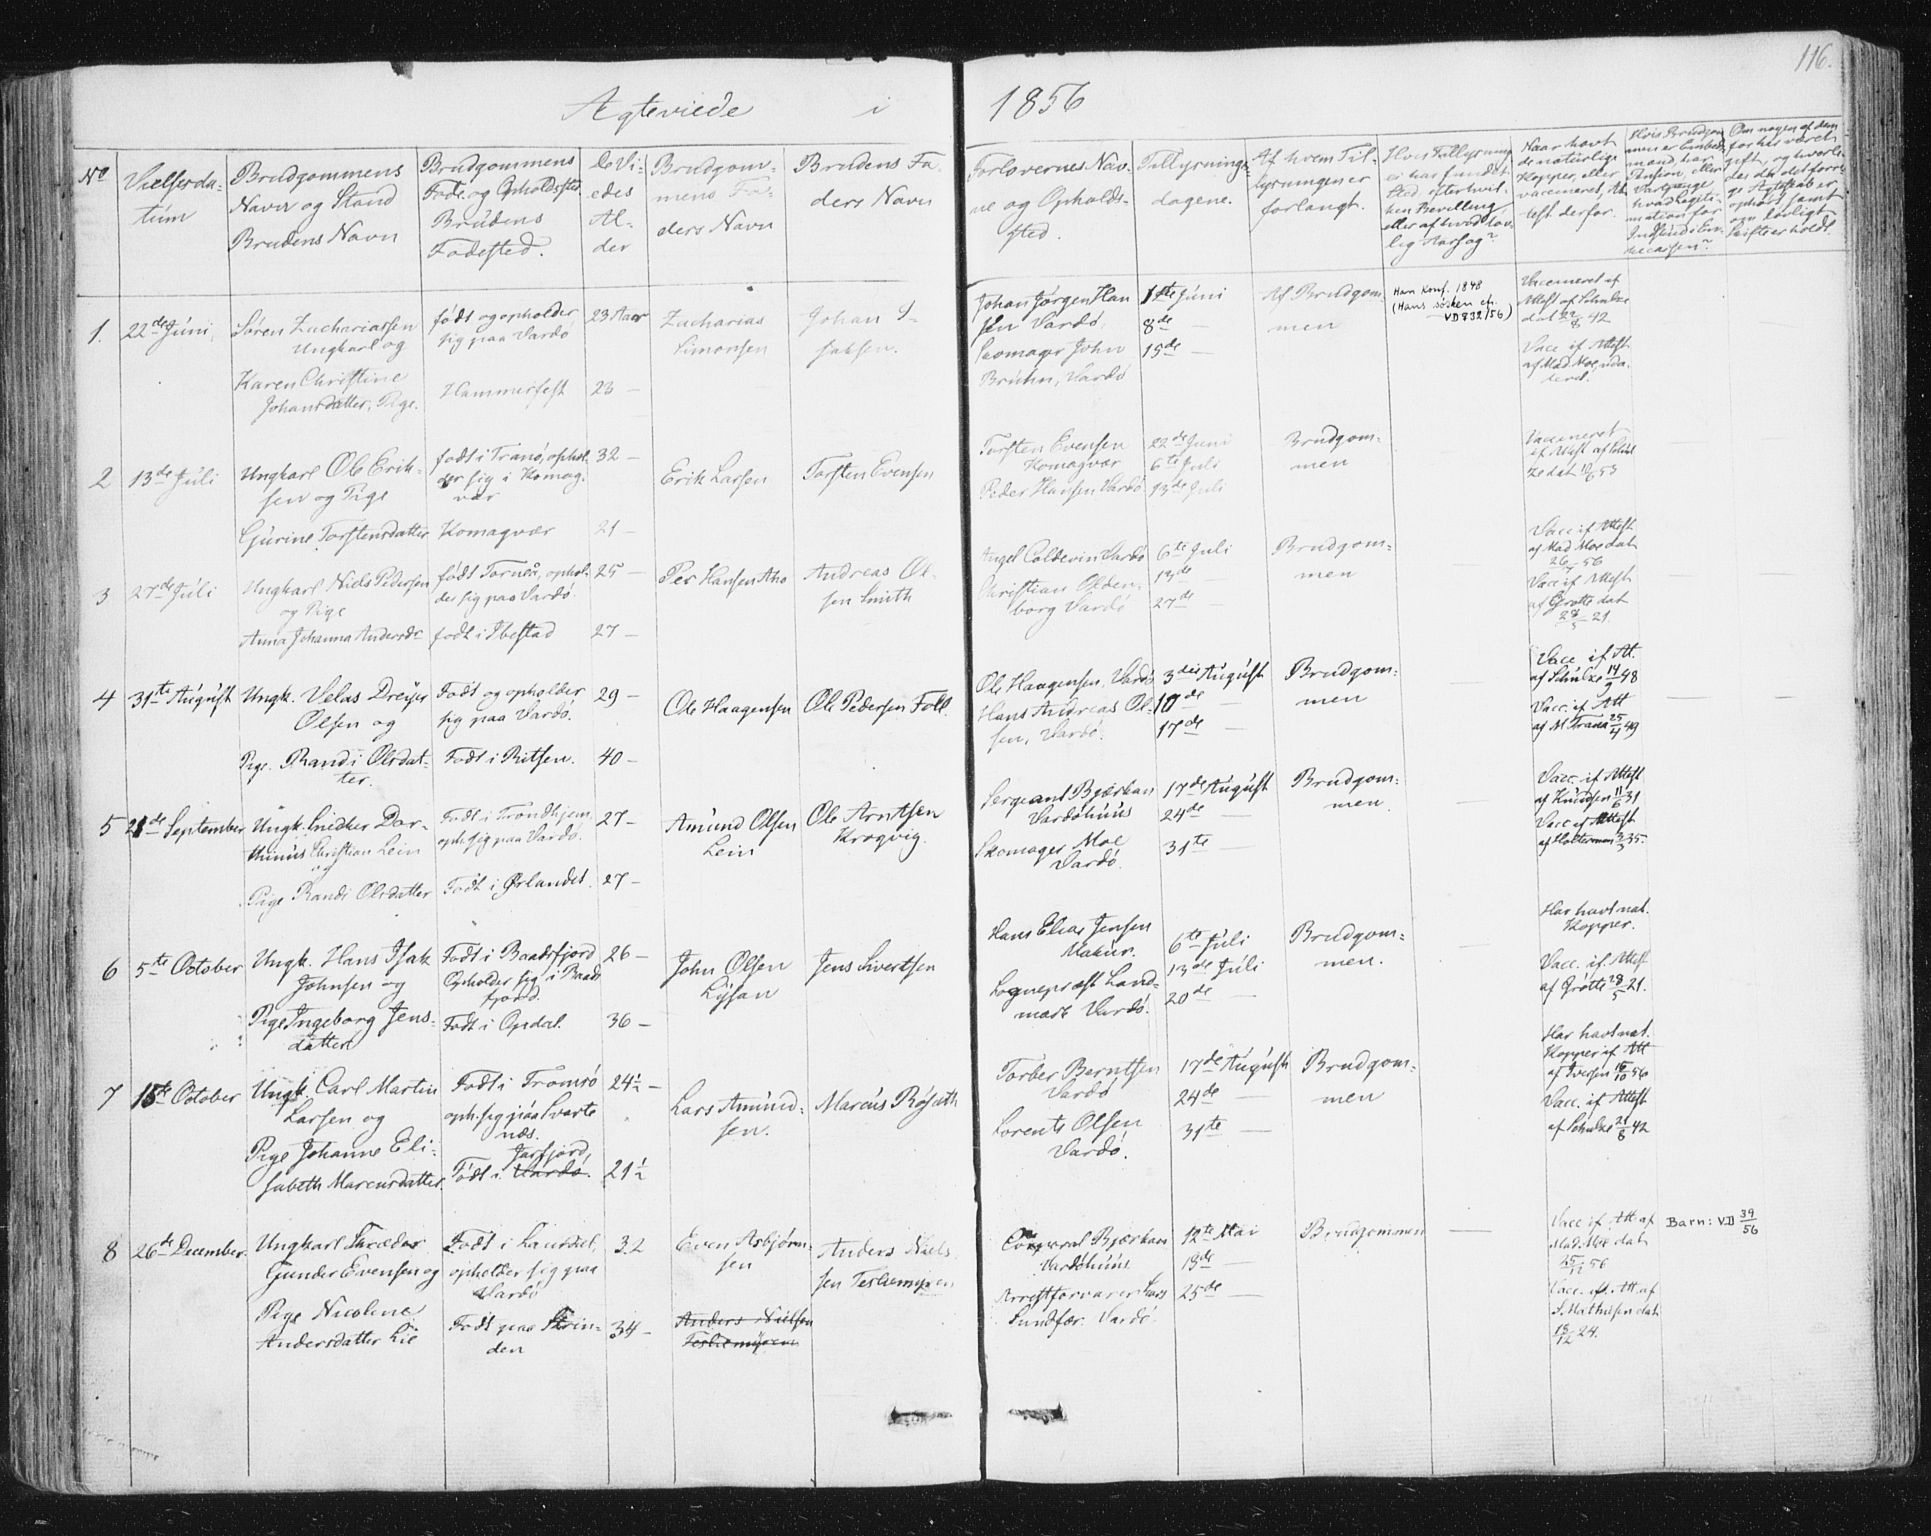 116.
Ægteviede i 1856
No
Vielsesda-
tum
Brudgommens
Navn og Stand
Brudens Navn
Brudgommens
Føde og Opholdssted
Brudens
Fødested.
De Vi-
edes
Al-
der
Brudgom-
mens Fa-
ders Navn
Brudens Fa-
ders Navn
Forlovernes Nav-
ne og Opholds-
sted.
Tillysnings-
dagene.
Af hvem Til-
lysningen er
forlangt.
Hvis Tillysning
ei har fundet
Sted, efter hvil-
ken Bevilling
eller af hvad lov-
lig Aarsag?
Naar havt
de naturlige
Kopper, eller
vaccineret, At-
test derfor.
Om nogen af dem
før har været
gift, og hvorle-
des da det forri-
ge Ægteskab er
ophørt samt
om lovligt
Skifte er holdt.
1.
22de Júni,
Søren Zachariassen
Ungkarl og
Karen Christine
Johansdatter, Pige.
født og opholder
sig paa Vardø
Hammerfest
23 Aar
23 —
Zacharias
Simonsen
Johan I-
saksen.
Johan Jørgen Han
sen Vardø,
Skomager John
Bruhn, Vardø
1ste Júni
8de —
15de —
Af Brudgom
men
Ham Konf. 1848
(Hans søsken cf.
VD 832/56)
Vaccineret if
Attest af Schulze
dat 22/8 42
Vacc if Attest
af Mad Moe, uda-
teret.
2
13de Júli
Ungkarl Ole Erik-
sen og Pige
Gúrine Torstensdatter
født i Tranø, ophol-
der sig i Komag-
vær
Komagvær
32 —
21 —
Erik Larsen
Torsten Evensen
Torsten Evensen
Komagvær
Peder Hansen Vardø
22de Juni
6te Juli
13de Júli
Brudgom-
men
Vaccineret
if Attest af Schul
ze dat
3
27de Júli
Ungkarl Niels Pedersen
og Pige
Anna Johanna Andersdr
født Torneå, ophol-
der sig paa Vardø.
født i Ibestad
25 —
27 —
Per Hansen Aho
Andreas Ol-
sen Smith
Angel Coldevin Vardø
Christian Olden-
borg Vardø
6te Juli
13de
27de —
Brudgom-
men
Vacc if Attest
af Mad Moe dat
Vacc if Attest
af Grøtte dat
28/5 21.
4
31te Aúgúst
Ungk. Velas Dreyer
Olsen og
Pige. Randi Olsdat-
ter.
Født og opholder
sig paa Vardø.
Født i Ritsen.
29 —
40 —
Ole Haagensen
Ole Pedersen Foll
Ole Haagensen, Vardø
Hans Andreas Ol-
sen, Vardø.
3die Aúgúst
10de —
17de —
Brudgom-
men
Vacc. if At.
af Schulze 14/9 48
Vacc. if. Att
af M. Trana 25/4 49
5
21de September
Ungk. Snedker Dor-
thinus Christian Lein
og
Pige Randi Olsdatter
Født i Trondhjem
oph. sig paa Vardø.
Født i Ørlandet.
27 —
27 —
Amúnd Olsen
Lein
Ole Arntsen
Krogvig.
Sergeant Bjerkan
Vardøhúús
Skomager Moe
Vardø.
17de Aúgúst
24de —
31te —
Brudgom-
men.
Vacc. if Attest
af Knúdsen 11/6 31
Vacc if Attest
af Holterman 3/3 35.
6
5te October
Ungk. Hans Isak
Johnsen og
Pige Ingeborg Jens-
datter
Født i Baadsfjord
Opholder sig i Baads
fjord.
Født i Opdal.
26 —
36 —
John Olsen
Lysan
Jens Sivertsen
Hans Elias Jensen
Makúr.
Sognepræst Land-
mark Vardø.
6te Júli
13de Júli
20de —
Brudgom-
men.
Har havt nat.
Kopper.
Vacc. if. Attest
af Grøtte 28/5 21.
7
15de October
Ungk. Carl Martin
Larsen og
Pige Johanne Eli-
sabeth Marcusdatter.
Født i Tromsø
oph. sig paa Svarte
næs.
Født i Jarfjord, Vardø.
24½ —
21½
Lars Amúnd-
sen.
Marcús Røgath
Torber Berntsen
Vardø
Lorents Olsen
Vardø.
17de Aúgúst
24de —
31te —
Brudgom-
men
Har havt nat.
Kopper if Att
af Iversen 15/10 56
Vacc. if Attest
af Schulze 21/8 42
8
26de December.
Ungkarl Skræder
Gunder Evensen og
Pige Nicoline
Andersdatter Lie
Født i Laurdal,
opholder sig paa
Vardø
Født paa Strin-
den
32
34 —
Even Asbjørn-
sen
Anders Nielsen
Tesliemyren
Anders Niels
sen Tesliemyren
Corporal Bjerkan
Vardøhúús.
Arrestforvarer Lars
Sundfær. Vardø.
12te Mai
18de —
25de —
Brudgommen
Vacc if Att af
Mad. Moe dat
Vacc. if. Att. af
S. Mathisen dat
13/12 24.
Barn: VD 39/56